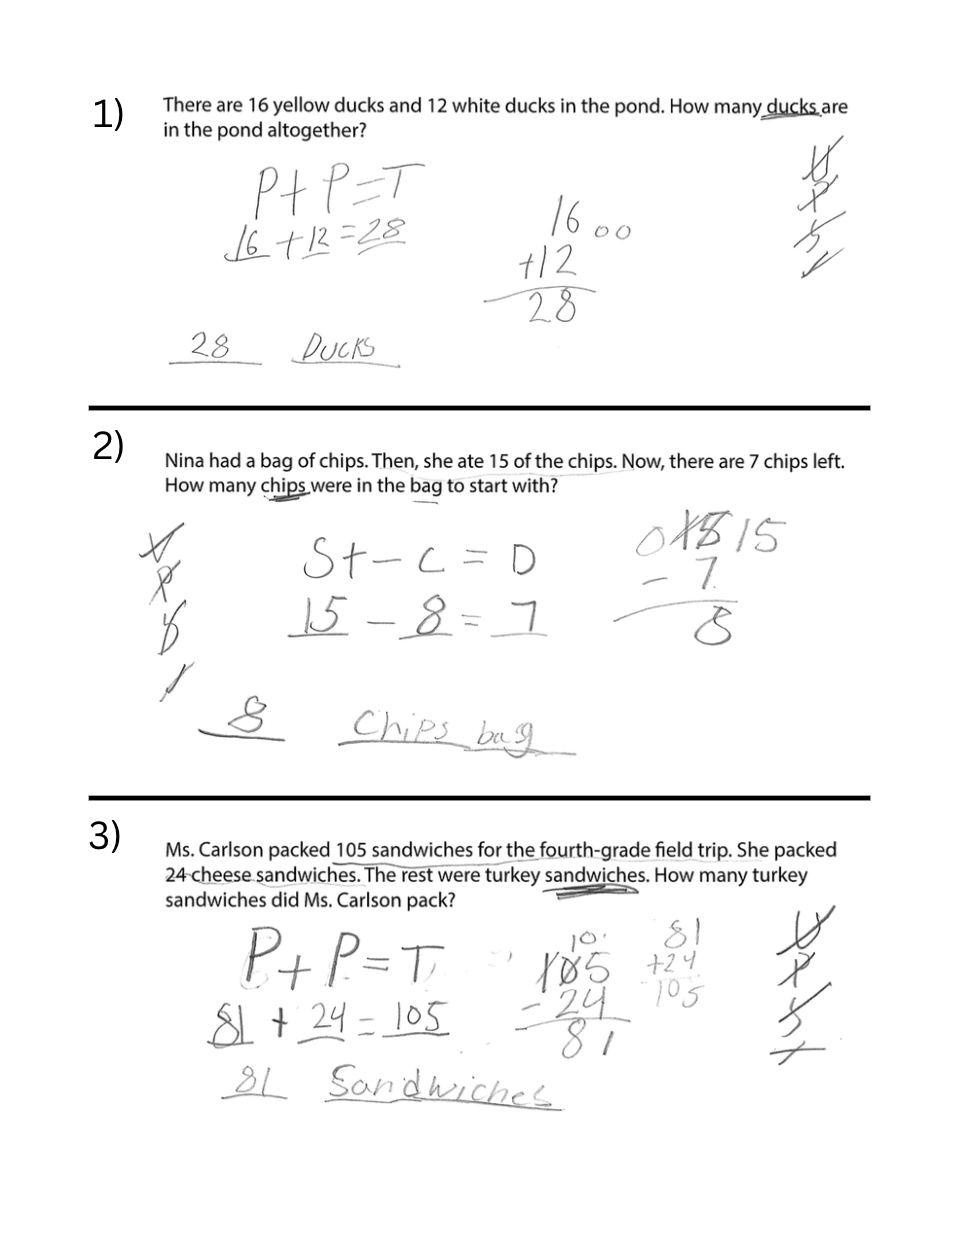 1)
There are 16 yellow ducks and 12 white ducks in the pond. How many ducks are
in the pond altogether?
P+ P=T
16 +12 =28
16 00
+12
28
28 Ducks
U
P
S
✓
2)
Nina had a bag of chips. Then, she ate 15 of the chips. Now, there are 7 chips left.
How many chips were in the bag to start with?
St - C = D
15 - 8 = 7
0 15 15
- 7
8
U
P
S
✓
8 Chips bag
3)
Ms. Carlson packed 105 sandwiches for the fourth-grade field trip. She packed
24 cheese sandwiches. The rest were turkey sandwiches. How many turkey
sandwiches did Ms. Carlson pack?
P+ P=T
81 + 24 = 105
10
105
- 24
81
81
+24
105
U
P
S
✓
81 Sandwiches